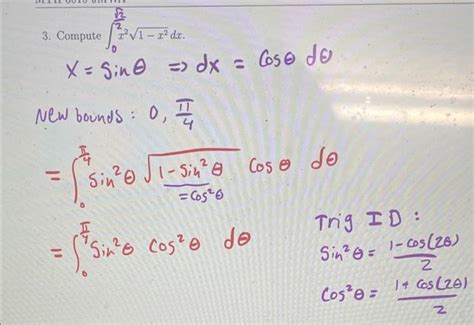 3. Compute ∫₀^{√2/2} x²√(1 − x²) dx.
x = Sinθ ⇒ dx = Cosθ dθ
New bounds: 0, π/4
= ∫₀^{π/4} Sin²θ √(1 - Sin²θ) Cosθ dθ
= Cos²θ
= ∫₀^{π/4} Sin²θ Cos²θ dθ
Trig ID:
Sin²θ = (1 - Cos(2θ))/2
Cos²θ = (1 + Cos(2θ))/2